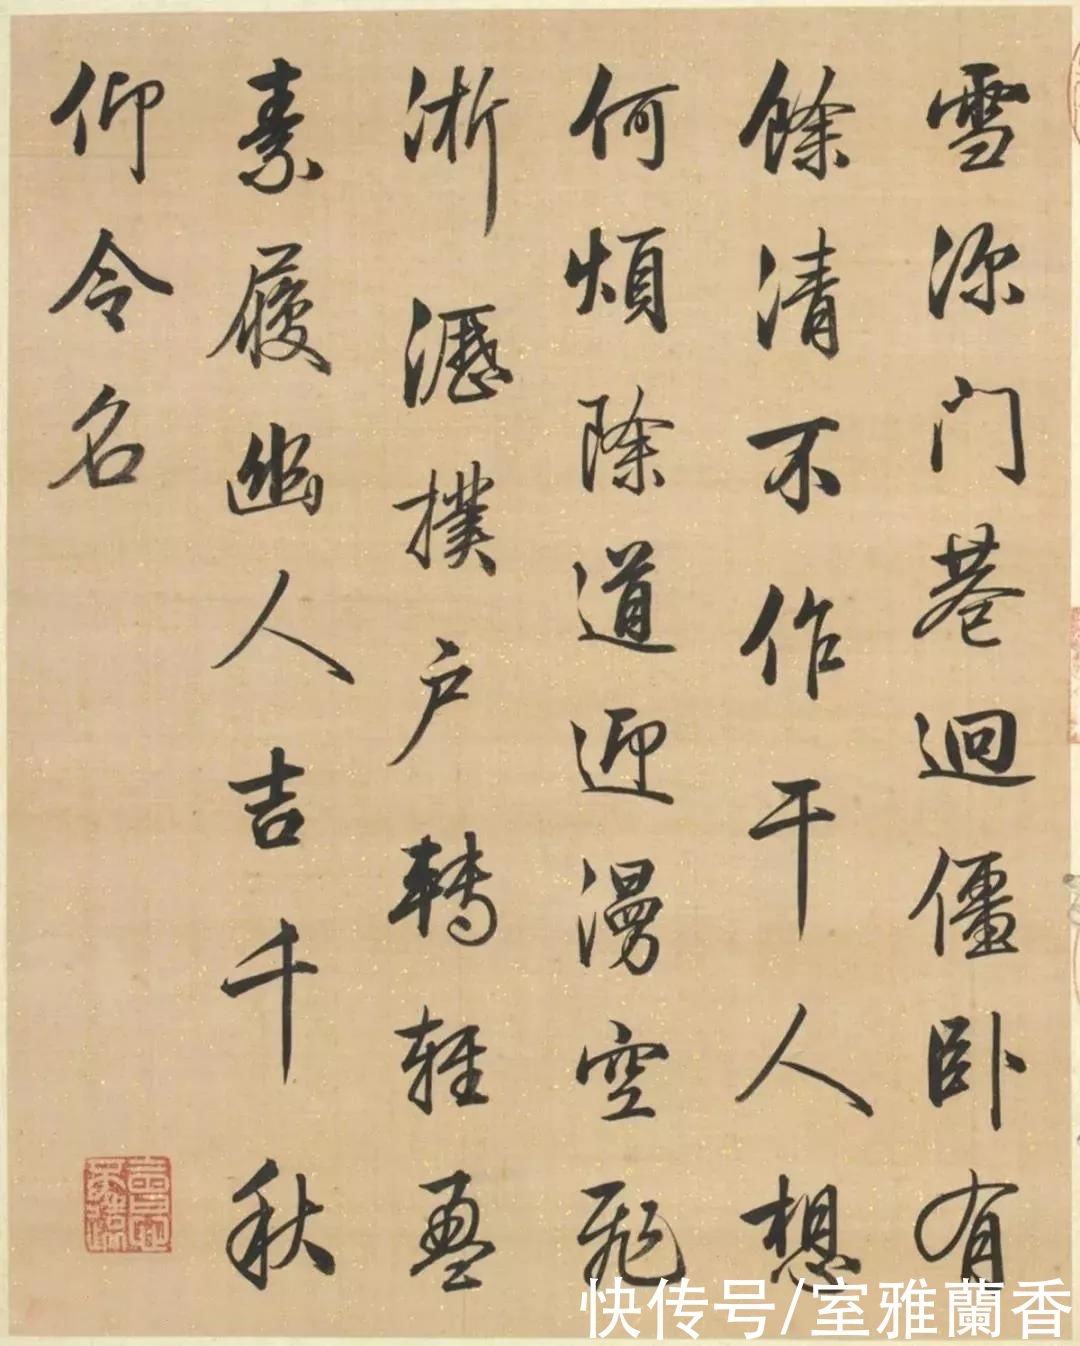 雪深门巷迥僵卧有
餘清不作干人想
何煩除道迎漫空飛
淅瀝撲户轉輕盈
素履幽人吉千秋
仰令名
快传号/室雅蘭香